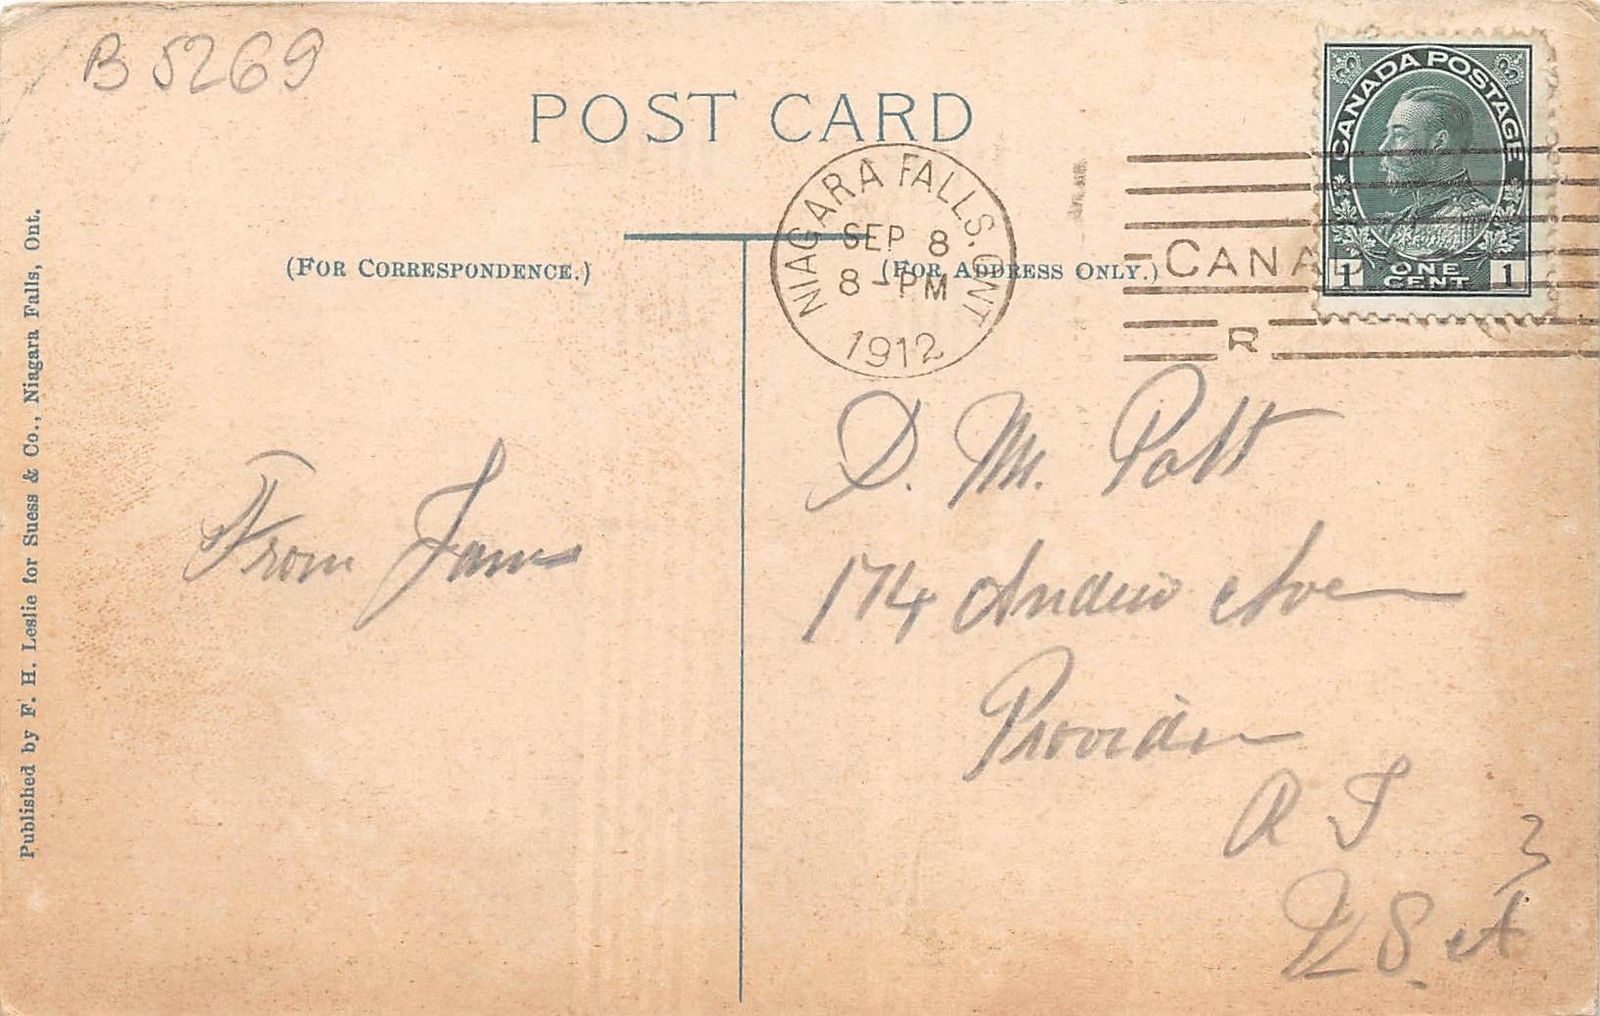 B 5269
POST CARD
CANADA POSTAGE
1 ONE CENT 1
NIAGARA FALLS. ONT
SEP 8
8 - PM
1912
CANAD
R
(FOR CORRESPONDENCE.)
(FOR ADDRESS ONLY.)
Published by F. H. Leslie for Suess & Co., Niagara Falls, Ont.
From
D. M.
174 Andrew Ave
R I
U S A
3